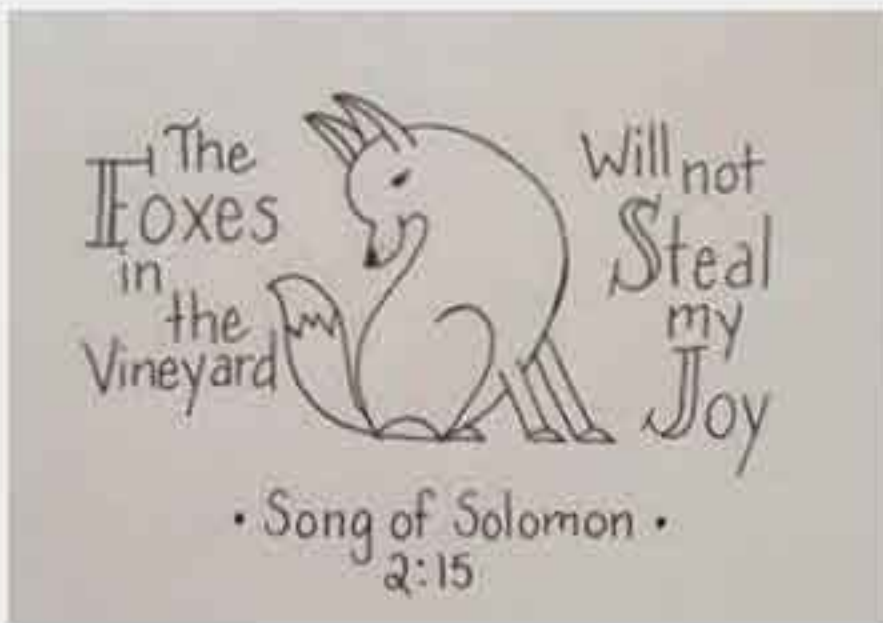 The
Foxes
in
the
Vineyard
Will not
Steal
my
Joy
• Song of Solomon •
2:15